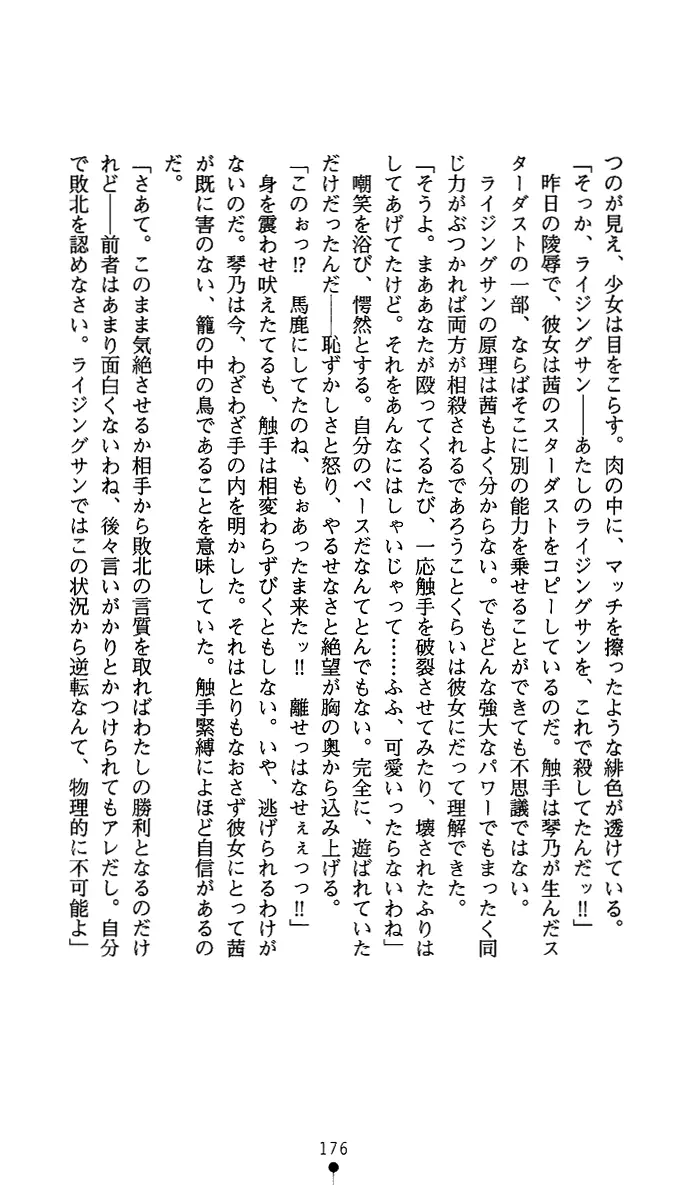 つのが見え、少女は目をこらす。肉の中に、マッチを擦ったような緋色が透けている。
「そっか、ライジングサン――あたしのライジングサンを、これで殺してたんだッ!!」
昨日の陵辱で、彼女は茜のスターダストをコピーしているのだ。触手は琴乃が生んだス
ターダストの一部、ならばそこに別の能力を乗せることができても不思議ではない。
ライジングサンの原理は茜もよく分からない。でもどんな強大なパワーでもまったく同
じ力がぶつかれば両方が相殺されるであろうことくらいは彼女にだって理解できた。
「そうよ。まああなたが殴ってくるたび、一応触手を破裂させてみたり、壊されたふりは
してあげてたけど。それをあんなにはしゃいじゃって……ふふ、可愛いったらないわね」
嘲笑を浴び、愕然とする。自分のペースだなんてとんでもない。完全に、遊ばれていた
だけだったんだ――恥ずかしさと怒り、やるせなさと絶望が胸の奥から込み上げる。
「このぉっ!?　馬鹿にしてたのね、もぉあったま来たッ!!　離せっはなせぇぇっっ!!」
身を震わせ吠えたてるも、触手は相変わらずびくともしない。いや、逃げられるわけが
ないのだ。琴乃は今、わざわざ手の内を明かした。それはとりもなおさず彼女にとって茜
が既に害のない、籠の中の鳥であることを意味していた。触手緊縛によほど自信があるの
だ。
「さあて。このまま気絶させるか相手から敗北の言質を取ればわたしの勝利となるのだけ
れど――前者はあまり面白くないわね、後々言いがかりとかつけられてもアレだし。自分
で敗北を認めなさい。ライジングサンではこの状況から逆転なんて、物理的に不可能よ」
176